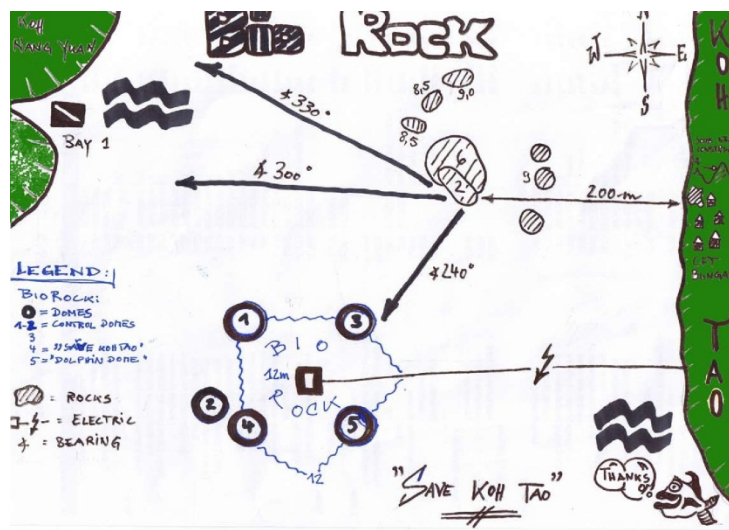 KOH
NANG YUAN
BIO ROCK
W E
S
KOH
TAO
8,5
9,0
8,5
∡330°
BAY 1
6
2
9
200m
∡300°
∡240°
LEGEND:
BIOROCK:
= DOMES
1-2 = CONTROL DOMES
3
4 = "SAVE KOH TAO"
5 = "DOLPHIN DOME"
= ROCKS
= ELECTRIC
= BEARING
1
3
BIO
12m
ROCK
2
4
5
12
"SAVE KOH TAO"
THANKS